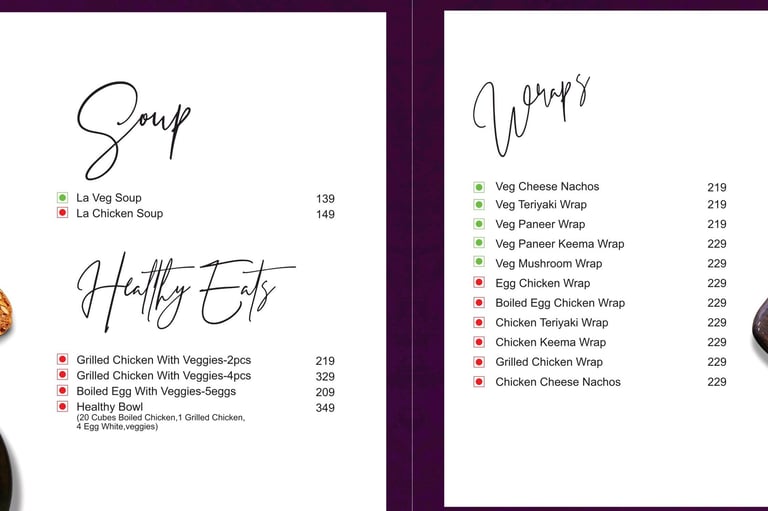 Soup
La Veg Soup 139
La Chicken Soup 149
Healthy Eats
Grilled Chicken With Veggies-2pcs 219
Grilled Chicken With Veggies-4pcs 329
Boiled Egg With Veggies-5eggs 209
Healthy Bowl 349
(20 Cubes Boiled Chicken,1 Grilled Chicken,
4 Egg White,veggies)
Wraps
Veg Cheese Nachos 219
Veg Teriyaki Wrap 219
Veg Paneer Wrap 219
Veg Paneer Keema Wrap 229
Veg Mushroom Wrap 229
Egg Chicken Wrap 229
Boiled Egg Chicken Wrap 229
Chicken Teriyaki Wrap 229
Chicken Keema Wrap 229
Grilled Chicken Wrap 229
Chicken Cheese Nachos 229